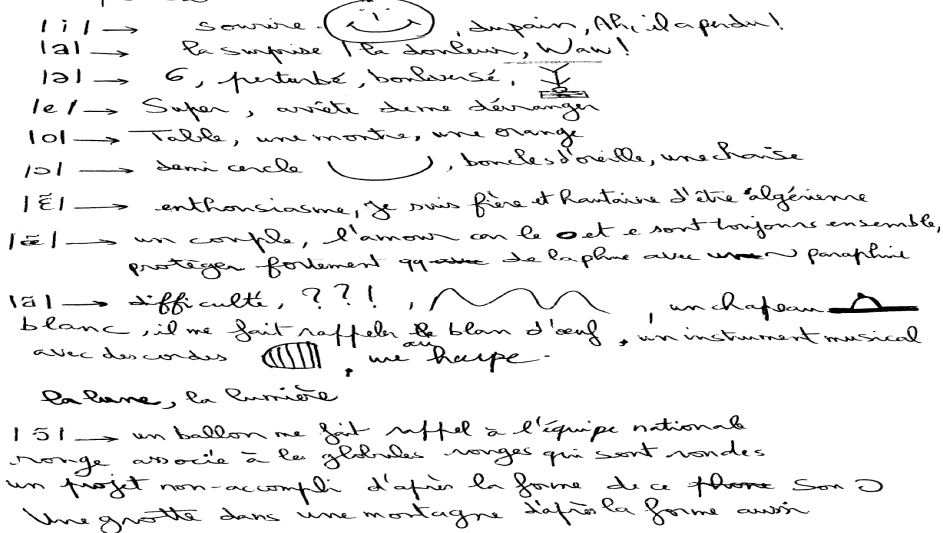 |i| → sourire. , du pain, Ah, il a perdu!
|a| → la surprise / la douleur, Waw!
|ə| → 6, perturbé, bouleversé,
|e| → Super, arrête de me déranger
|o| → Table, une montre, une orange
|ɔ| → demi cercle , boucles d'oreille, une chaise
|ɛ̃| → enthousiasme, je suis fière et hautaine d'être algérienne
|œ̃| → un couple, l'amour car le o et e sont toujours ensemble,
protéger fortement qq de la pluie avec un paraphuie
|ã| → difficulté, ??!, , un chapeau
blanc, il me fait rappeler au blan d'œuf, un instrument musical
avec des cordes , une harpe.
la lune, la lumière
|ɔ̃| → un ballon me fait rappel à l'équipe national
rouge associé à les globules rouges qui sont rondes
un projet non-accompli d'après la forme de ce phone son ɔ
Une grotte dans une montagne d'après la forme aussi